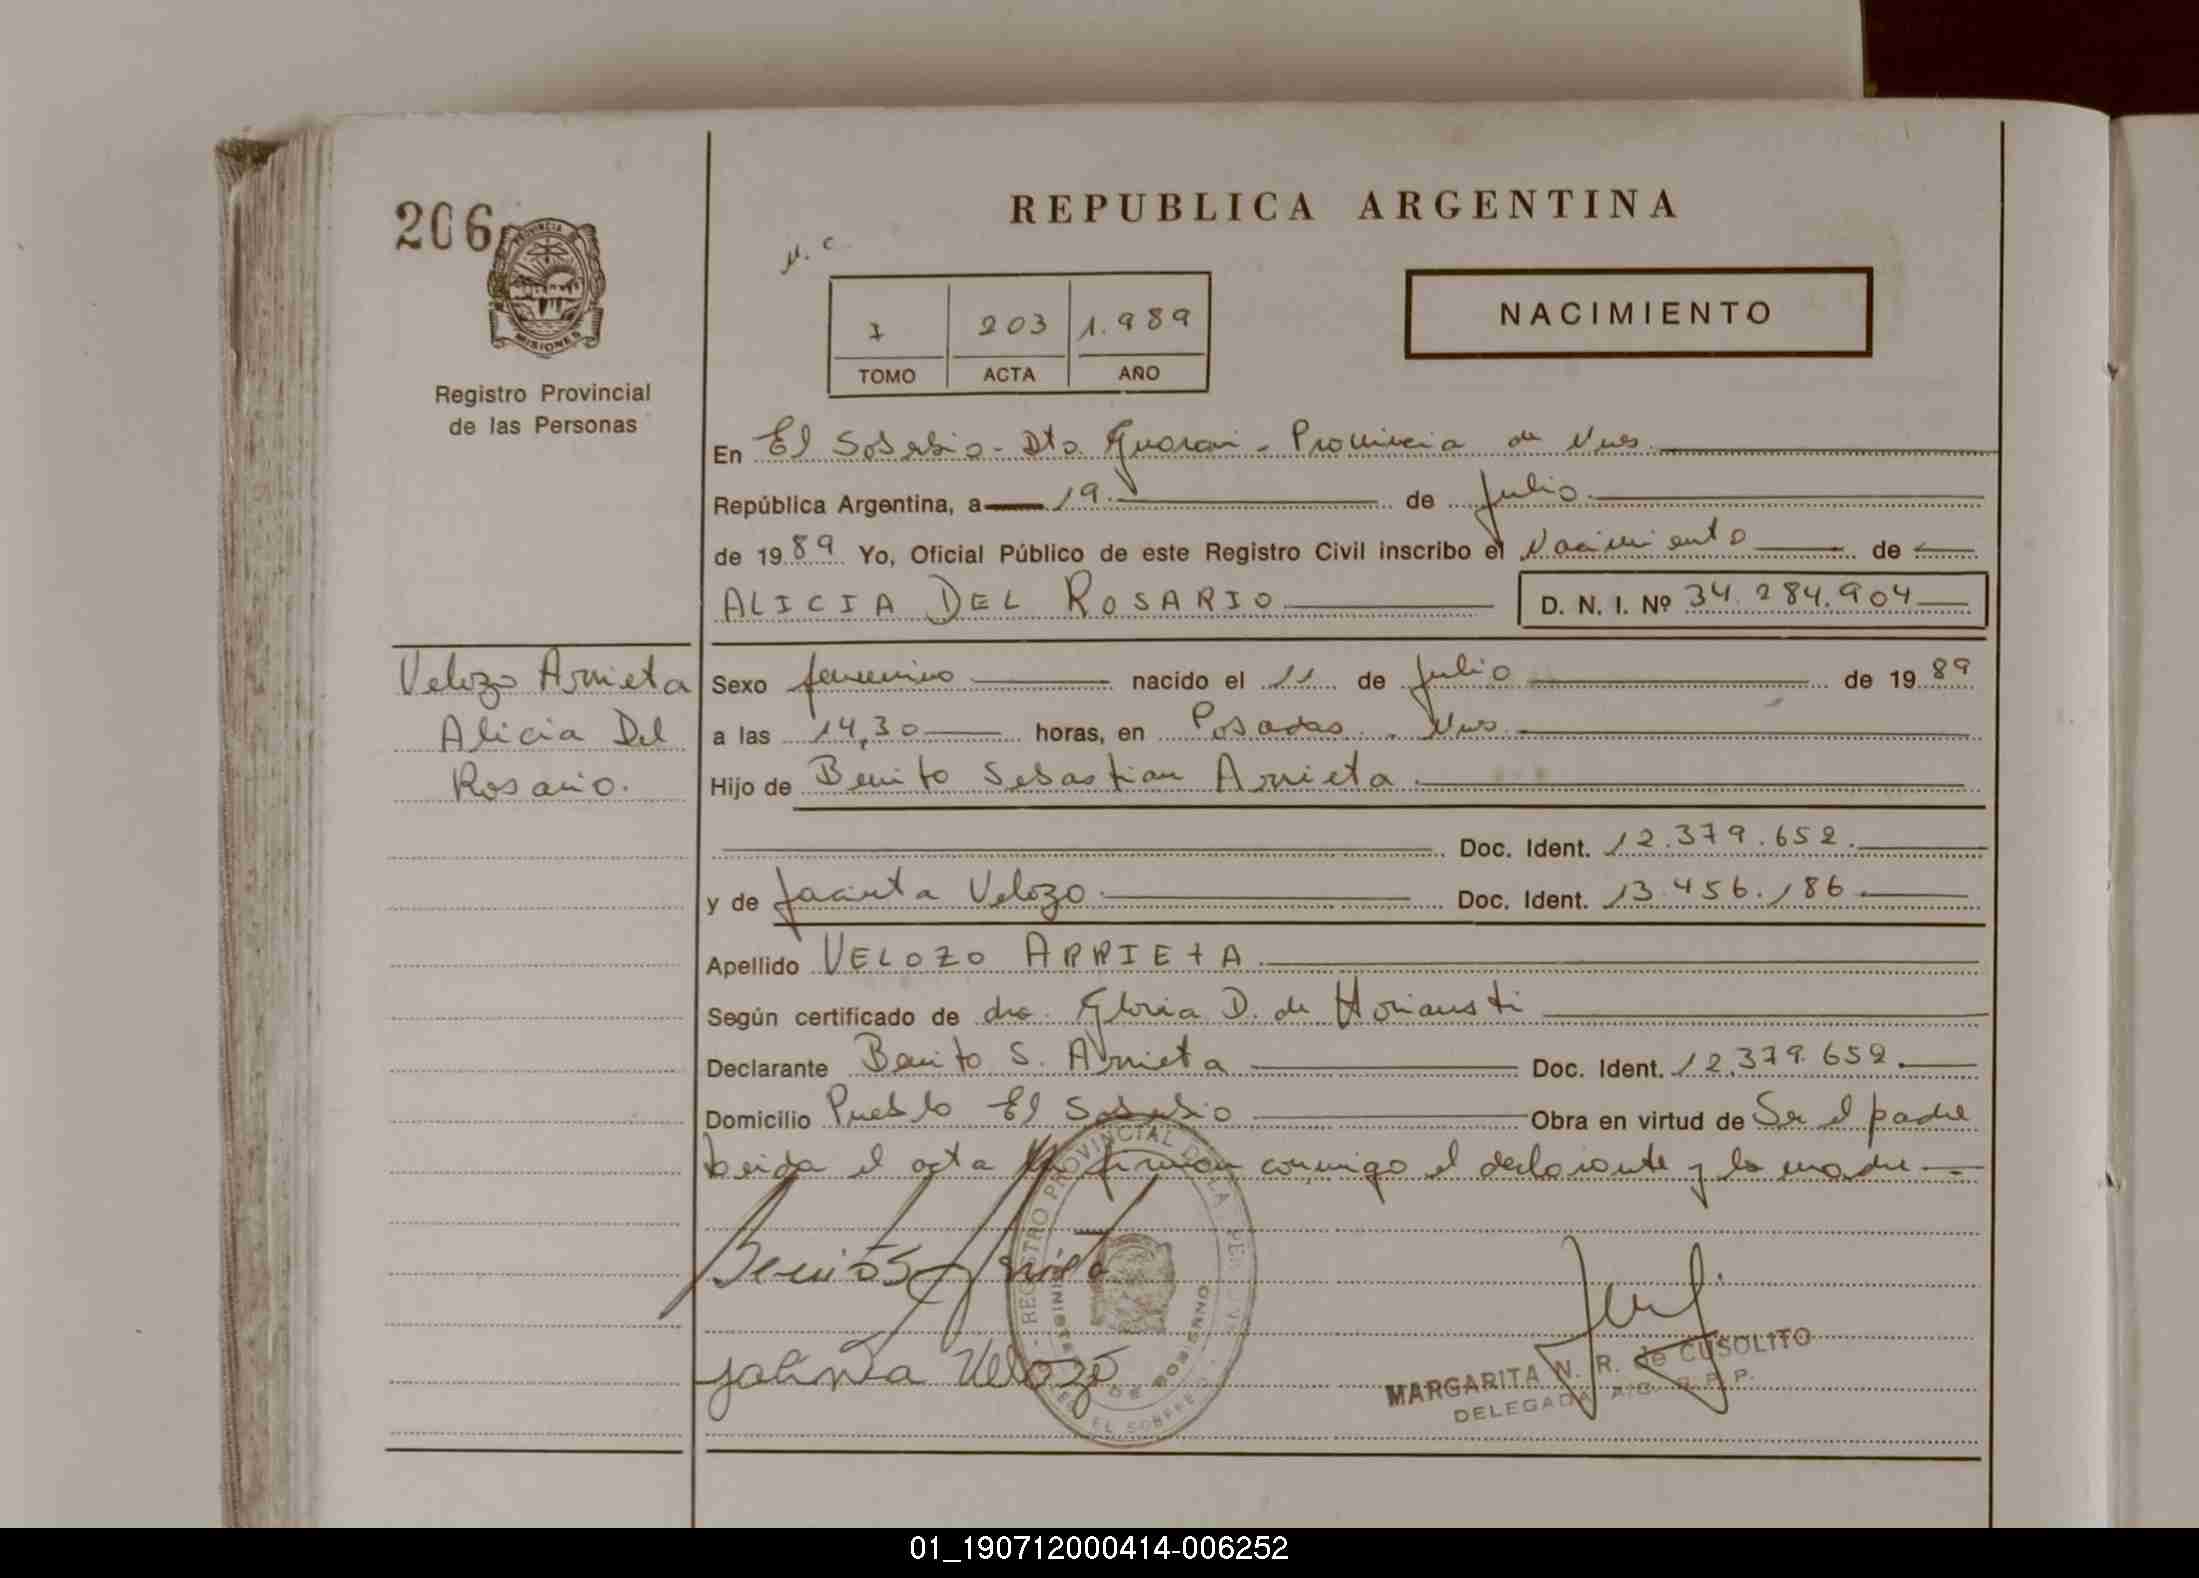 206
PROVINCIA DE
MISIONES
Registro Provincial
de las Personas
REPUBLICA ARGENTINA
NACIMIENTO
1 203 1.989
TOMO ACTA AÑO
En El Soberbio - Dto. Guarani - Provincia de Mnes.
República Argentina, a 19 de Julio
de 1989 Yo, Oficial Público de este Registro Civil inscribo el Nacimiento de
ALICIA DEL ROSARIO D. N. I. Nº 34.284.904
Velozo Arrieta
Alicia Del
Rosario.
Sexo femenino nacido el 11 de Julio de 1989
a las 14,30 horas, en Posadas. Mnes.
Hijo de Benito Sebastian Arrieta
Doc. Ident. 12.379.652.
y de Jacinta Velozo Doc. Ident. 13.456.186
Apellido VELOZO ARRIETA
Según certificado de dra. Gloria D. de
Declarante Benito S. Arrieta Doc. Ident. 12.379.652.
Domicilio Pueblo El Soberbio Obra en virtud de Ser el padre
Leida el acta firman conmigo el declarante y la madre
Benito S Arrieta
Velozo
REGISTRO PROVINCIAL DE LAS PERSONAS
MINISTERIO DE GOBIERNO
EL SOBERBIO
MARGARITA N. R. de CUSOLITO
DELEGADA A/C. R. P. P.
01_190712000414-006252